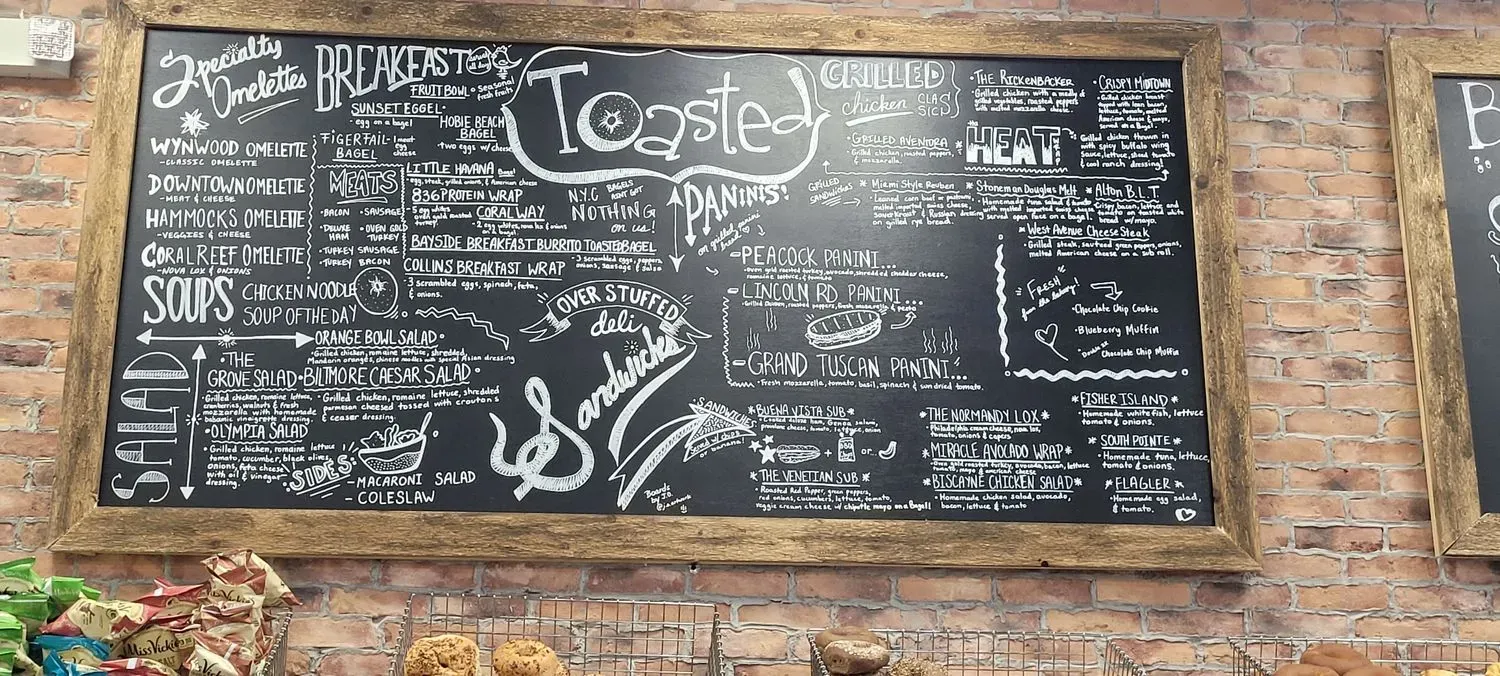 Specialty
Omelettes
WYNWOOD OMELETTE
-CLASSIC OMELETTE
DOWNTOWN OMELETTE
-MEAT & CHEESE
HAMMOCKS OMELETTE
-VEGGIES & CHEESE
CORAL REEF OMELETTE
-NOVA LOX & ONIONS
BREAKFAST
served all day!
FRUIT BOWL • seasonal
fresh fruits
SUNSET EGGEL•
•egg on a bagel
HOBIE BEACH
BAGEL
•two eggs w/cheese
FIGERFAIL-
BAGEL
1 meat
egg
cheese
MEATS
•BACON •SAUSAGE
•DELUXE HAM
•OVEN GOLD TURKEY
•TURKEY SAUSAGE
•TURKEY BACON
LITTLE HAVANA Bagel
•egg, steak, grilled onions, & American cheese
836 PROTEIN WRAP
•5 egg whites
oven gold roasted
turkey!
CORAL WAY
•2 egg whites, nova lox & onions
on a bagel
N.Y.C BAGELS
AIN'T GOT
NOTHING
on us!
BAYSIDE BREAKFAST BURRITO TOASTED BAGEL
•3 scrambled eggs, peppers,
onions, sausage & salsa
COLLINS BREAKFAST WRAP
•3 scrambled eggs, spinach, feta,
& onions.
SOUPS
CHICKEN NOODLE
SOUP OF THE DAY
SALAD
ORANGE BOWL SALAD•
•Grilled chicken, romaine lettuce, shredded,
Mandarin oranges, chinese noodles with special Asian dressing
•THE
GROVE SALAD•
•Grilled chicken, romaine lettuce,
cranberries, walnuts & fresh
mozzarella with homemade
balsamic vinaigrette dressing
BILTMORE CAESAR SALAD•
•Grilled chicken, romaine lettuce, shredded
parmesan cheesed tossed with croutons
& ceaser dressing.
•OLYMPIA SALAD
•Grilled chicken, romaine lettuce
tomato, cucumber, black olives,
onions, feta cheese
with oil & vinegar
dressing.
SIDES:
-MACARONI SALAD
-COLESLAW
Toasted
PANINIS:
on grilled panini
bread
-PEACOCK PANINI...
•Oven gold roasted turkey, avocado, shredded cheddar cheese,
romaine lettuce, & tomato
-LINCOLN RD PANINI...
•Grilled Chicken, roasted peppers, fresh mozzarella & pesto
-GRAND TUSCAN PANINI..
•Fresh mozzarella, tomato, basil, spinach & sun dried tomato.
OVER STUFFED
deli
Sandwiches
SANDWICHES
Served w/ chips
or banana!
Boards
by J.O.
*BUENA VISTA SUB*
•Cooked deluxe ham, Genoa salami,
provolone cheese, tomato, lettuce, onion
BBQ
or...
*THE VENETIAN SUB*
•Roasted Red Pepper, green peppers,
red onions, cucumbers, lettuce, tomato,
veggie cream cheese w/ chipotle mayo on a Bagel!
*THE NORMANDY LOX*
•Philadelphia cream cheese, nova lox,
tomato, onions & capers
*MIRACLE AVOCADO WRAP*
•Oven gold roasted turkey, avocado, bacon, lettuce
tomato, mayo & american cheese
*BISCAYNE CHICKEN SALAD*
•Homemade chicken salad, avocado,
bacon, lettuce & tomato
*FISHER ISLAND*
•Homemade white fish, lettuce
tomato & onions.
*SOUTH POINTE*
•Homemade tuna, lettuce,
tomato & onions.
*FLAGLER*
•Homemade egg salad,
& tomato.
GRILLED
chicken CLASSICS
•GRILLED AVENTURA
•Grilled chicken, roasted peppers,
& mozzarella.
•THE RICKENBACKER
•Grilled chicken with a medly of
grilled vegetables, roasted peppers
with melted mozzarella cheese
•CRISPY MIDTOWN
•Grilled chicken breast
topped with lean bacon
lettuce, tomato, melted
American cheese & mayo,
served on a Bagel.
the
HEAT
Grilled chicken thrown in
with spicy buffalo wing
sauce, lettuce, sliced tomato
& cool ranch dressing!
GRILLED
SANDWICHES
*Miami Style Reuben
•Leaned corn beef or pastrami,
melted imported swiss cheese,
sauerkraut & Russian dressing
on grilled rye bread.
*Stoneman Douglas Melt
•Homemade tuna salad & tomato
with melted imported swiss cheese
served open face on a bagel.
*Alton B.L.T
•Crispy bacon, lettuce, and
tomato on toasted white
bread w/mayo.
*West Avenue Cheese Steak
•Grilled steak, sauteed green peppers, onions,
melted American cheese on a sub roll.
FRESH
from the bakery!
•Chocolate Chip Cookie
•Blueberry Muffin
•Double Chocolate Chip Muffin
B
Miss Vickie's